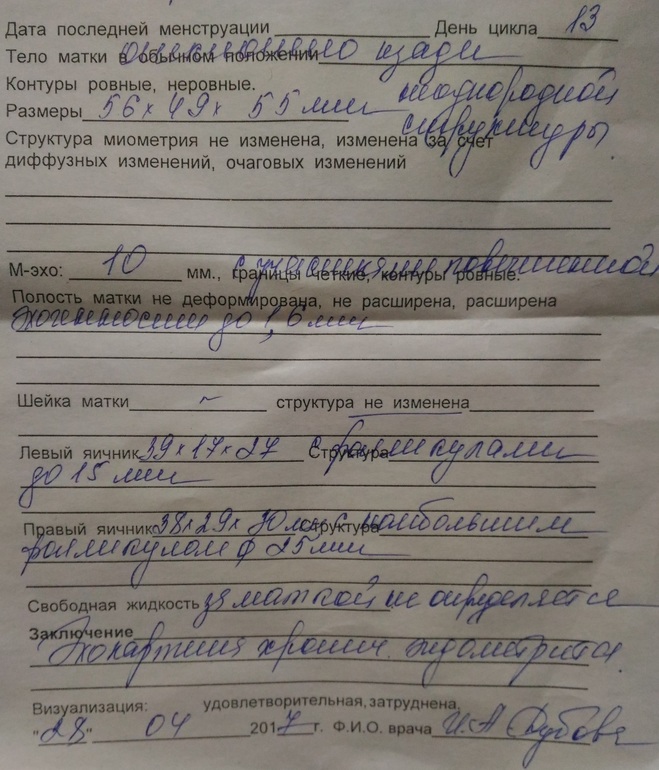 Дата последней менструации День цикла 13
Тело матки в обычном положении отклонено кзади
Контуры ровные, неровные.
Размеры 56 х 49 х 55 мм неоднородной
структуры
Структура миометрия не изменена, изменена за счет
диффузных изменений, очаговых изменений
М-эхо: 10 мм., границы четкие, контуры ровные. с участками повышенной
Полость матки не деформирована, не расширена, расширена
эхогенности до 1,6 мм
Шейка матки ~ структура не изменена
Левый яичник 39х17х27 Структура с фолликулами
до 15 мм
Правый яичник 38х29х30 мм структура с наибольшим
фолликулом ф 25 мм
Свободная жидкость за маткой не определяется
Заключение
Эхокартина хронич. эндометрита.
Визуализация: удовлетворительная, затруднена,
"28" 04 2017 г. Ф.И.О. врача И.А Дубова